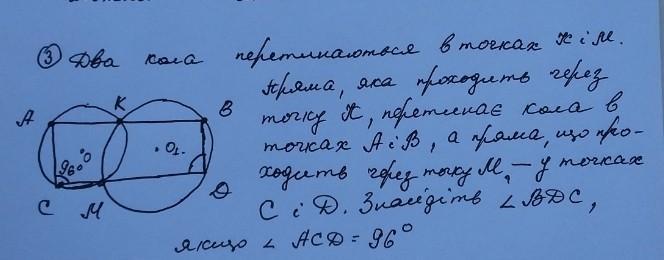 ③ Два кола перетинаються в точках К і М.
Пряма, яка проходить через
точку К, перетинає кола в
точках А і В, а пряма, що про-
ходить через точку М, – у точках
С і D. Знайдіть ∠BDC,
якщо ∠ ACD = 96°
A
K
B
O
O₁
96°
C
M
D